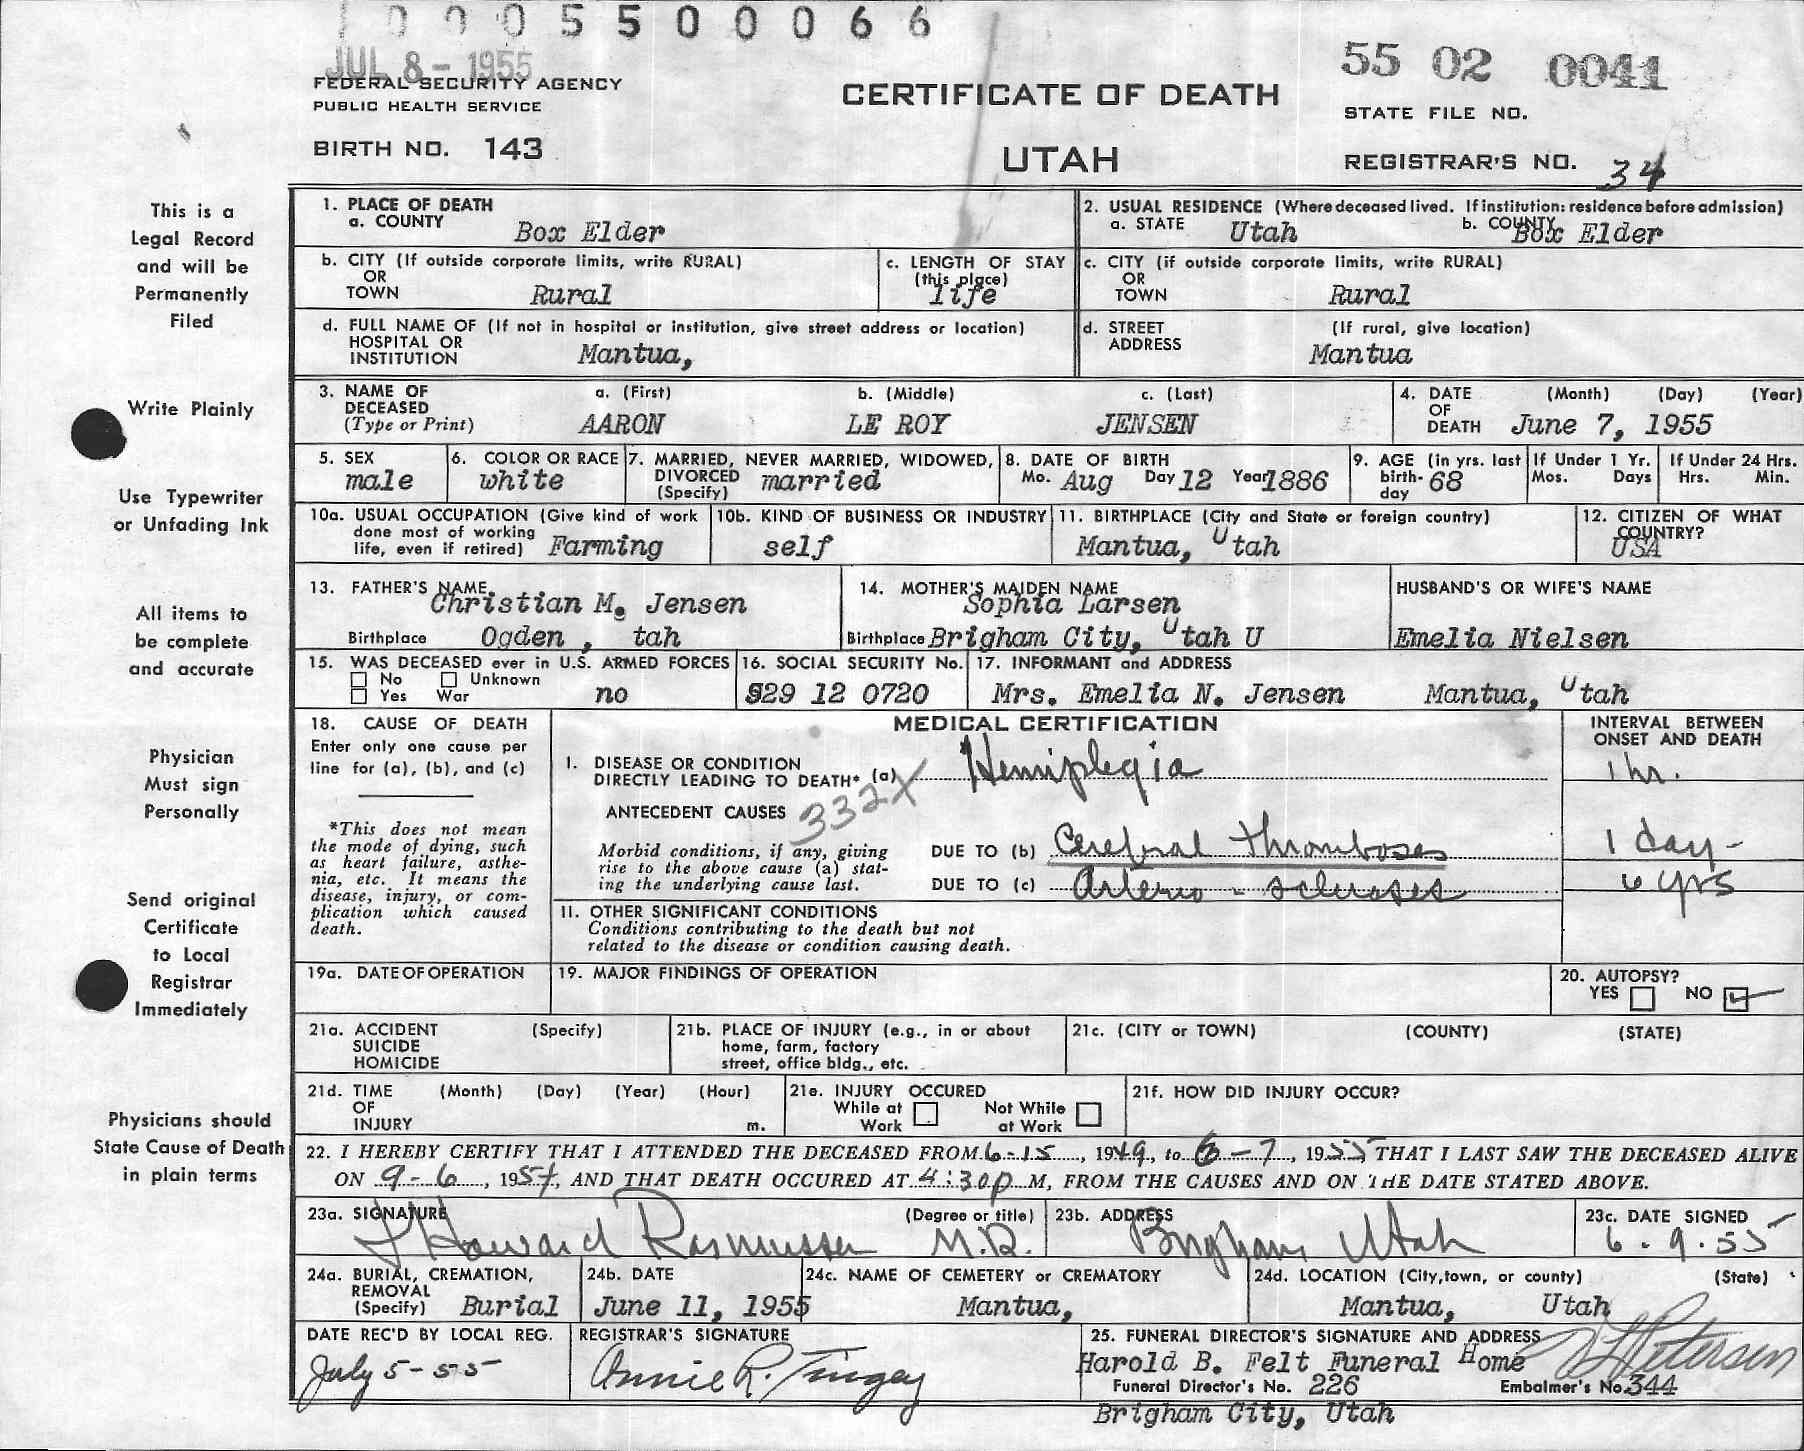 1 0 0 0 5 5 0 0 0 6 6
JUL 8 - 1955
55 02 0041
FEDERAL SECURITY AGENCY
PUBLIC HEALTH SERVICE
CERTIFICATE OF DEATH
STATE FILE NO.
BIRTH NO. 143
UTAH
REGISTRAR'S NO. 34
This is a
Legal Record
and will be
Permanently
Filed
Write Plainly
Use Typewriter
or Unfading Ink
All items to
be complete
and accurate
Physician
Must sign
Personally
Send original
Certificate
to Local
Registrar
Immediately
Physicians should
State Cause of Death
in plain terms
1. PLACE OF DEATH
a. COUNTY Box Elder
2. USUAL RESIDENCE (Where deceased lived. If institution: residence before admission)
a. STATE Utah b. COUNTY Box Elder
b. CITY (If outside corporate limits, write RURAL)
OR
TOWN Rural
c. LENGTH OF STAY
(this place)
life
c. CITY (if outside corporate limits, write RURAL)
OR
TOWN Rural
d. FULL NAME OF (If not in hospital or institution, give street address or location)
HOSPITAL OR
INSTITUTION Mantua,
d. STREET (If rural, give location)
ADDRESS Mantua
3. NAME OF a. (First) b. (Middle) c. (Last)
DECEASED
(Type or Print) AARON LE ROY JENSEN
4. DATE (Month) (Day) (Year)
OF
DEATH June 7, 1955
5. SEX
male
6. COLOR OR RACE
white
7. MARRIED, NEVER MARRIED, WIDOWED,
DIVORCED married
(Specify)
8. DATE OF BIRTH
Mo. Aug Day 12 Year 1886
9. AGE (in yrs. last
birth- 68
day
If Under 1 Yr.
Mos. Days
If Under 24 Hrs.
Hrs. Min.
10a. USUAL OCCUPATION (Give kind of work
done most of working
life, even if retired) Farming
10b. KIND OF BUSINESS OR INDUSTRY
self
11. BIRTHPLACE (City and State or foreign country)
Mantua, Utah
12. CITIZEN OF WHAT
COUNTRY?
USA
13. FATHER'S NAME
Christian M. Jensen
Birthplace Ogden , tah
14. MOTHER'S MAIDEN NAME
Sophia Larsen
Birthplace Brigham City, Utah U
HUSBAND'S OR WIFE'S NAME
Emelia Nielsen
15. WAS DECEASED ever in U.S. ARMED FORCES
No Unknown
Yes War no
16. SOCIAL SECURITY No.
529 12 0720
17. INFORMANT and ADDRESS
Mrs. Emelia N. Jensen Mantua, Utah
18. CAUSE OF DEATH
Enter only one cause per
line for (a), (b), and (c)
*This does not mean
the mode of dying, such
as heart failure, asthe-
nia, etc. It means the
disease, injury, or com-
plication which caused
death.
MEDICAL CERTIFICATION
INTERVAL BETWEEN
ONSET AND DEATH
I. DISEASE OR CONDITION
DIRECTLY LEADING TO DEATH* (a) Hemiplegia 1 hr.
ANTECEDENT CAUSES 332X
Morbid conditions, if any, giving
rise to the above cause (a) stat-
ing the underlying cause last.
DUE TO (b) Cerebral thromboses 1 day-
DUE TO (c) Arterio-scleroses 6 yrs
II. OTHER SIGNIFICANT CONDITIONS
Conditions contributing to the death but not
related to the disease or condition causing death.
19a. DATE OF OPERATION
19. MAJOR FINDINGS OF OPERATION
20. AUTOPSY?
YES NO
21a. ACCIDENT (Specify)
SUICIDE
HOMICIDE
21b. PLACE OF INJURY (e.g., in or about
home, farm, factory
street, office bldg., etc.
21c. (CITY or TOWN) (COUNTY) (STATE)
21d. TIME (Month) (Day) (Year) (Hour)
OF
INJURY m.
21e. INJURY OCCURED
While at Work Not While at Work
21f. HOW DID INJURY OCCUR?
22. I HEREBY CERTIFY THAT I ATTENDED THE DECEASED FROM 6-15, 1949, to 6-7, 1955, THAT I LAST SAW THE DECEASED ALIVE
ON 9-6, 1954, AND THAT DEATH OCCURED AT 4:30p M, FROM THE CAUSES AND ON THE DATE STATED ABOVE.
23a. SIGNATURE (Degree or title)
J Howard Rasmussen M.D.
23b. ADDRESS
Brigham Utah
23c. DATE SIGNED
6-9-55
24a. BURIAL, CREMATION,
REMOVAL
(Specify) Burial
24b. DATE
June 11, 1955
24c. NAME OF CEMETERY or CREMATORY
Mantua,
24d. LOCATION (City, town, or county) (State)
Mantua, Utah
DATE REC'D BY LOCAL REG.
July 5-55
REGISTRAR'S SIGNATURE
Annie R. Tingey
25. FUNERAL DIRECTOR'S SIGNATURE AND ADDRESS
Harold B. Felt Funeral Home Petersen
Funeral Director's No. 226 Embalmer's No. 344
Brigham City, Utah